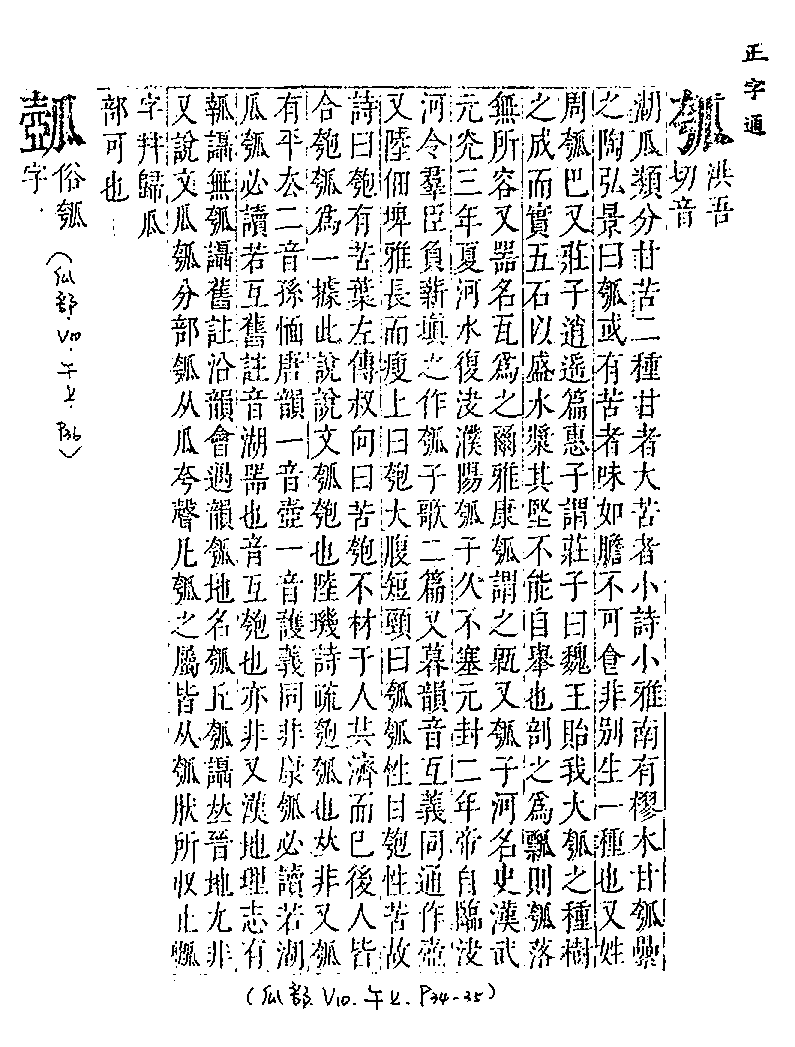 正字通
瓠
洪吾切音
湖瓜類分甘苦二種甘者大苦者小詩小雅南有樛木甘瓠纍
之陶弘景曰瓠或有苦者味如膽不可食非別生一種也又姓
周瓠巴又莊子逍遙篇惠子謂莊子曰魏王貽我大瓠之種樹
之成而實五石以盛水漿其堅不能自舉也剖之爲瓢則瓠落
無所容又器名瓦爲之爾雅康瓠謂之甈又瓠子河名史漢武
元光三年夏河水復決濮陽瓠子久不塞元封二年帝自臨決
河令羣臣負薪塡之作瓠子歌二篇又暮韻音互義同通作壺
又陸佃埤雅長而瘦上曰匏大腹短頸曰瓠瓠性甘匏性苦故
詩曰匏有苦葉左傳叔向曰苦匏不材于人共濟而已後人皆
合匏瓠爲一據此說說文瓠匏也陸璣詩疏匏瓠也𠀤非又瓠
有平去二音孫愐唐韻一音壺一音護義同非康瓠必讀若湖
瓜瓠必讀若互舊註音湖器也音互匏也亦非又漢地理志有
瓡讘無瓠讘舊註沿韻會過韻瓠地名瓠丘瓠讘𠀤晉地尤非
又說文瓜瓠分部瓠从瓜夸聲凡瓠之屬皆从瓠肰所收止瓢
字幷歸瓜
部可也
(瓜部. V10. 午上. P34-35)
俗瓠
字.
(瓜部. V10. 午上. P36)